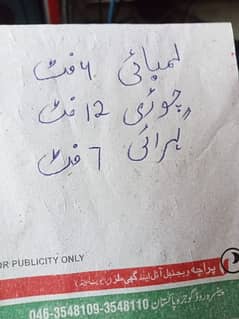 لمبائی 6 فٹ
چوڑی 12 فٹ
گہرائی 7 فٹ
OR PUBLICITY ONLY
پراچہ ویجیٹیبل آئل اینڈ گھی ملز
پینسرہ روڈ گوجرہ پاکستان
046-3548109-3548110